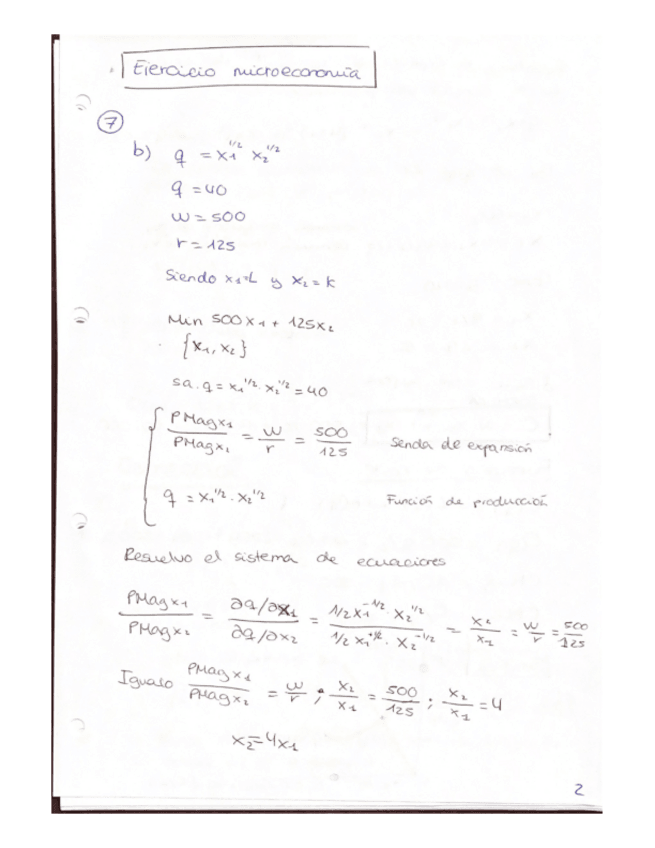 Ejercicio microeconomía
7
b) q = x₁^1/2 x₂^1/2
q = 40
w = 500
r = 125
Siendo x₁=L y x₂=k
Min 500x₁ + 125x₂
{x₁, x₂}
sa. q = x₁^1/2 · x₂^1/2 = 40
PMagx₁/PMagx₂ = w/r = 500/125 Senda de expansión
q = x₁^1/2 · x₂^1/2 Función de producción
Resuelvo el sistema de ecuaciones
PMagx₁/PMagx₂ = ∂q/∂x₁ / ∂q/∂x₂ = 1/2 x₁^-1/2 · x₂^1/2 / 1/2 x₁^+1/2 · x₂^-1/2 = x₂/x₁ = w/r = 500/125
Igualo PMagx₁/PMagx₂ = w/r ; x₂/x₁ = 500/125 ; x₂/x₁ = 4
x₂=4x₁
2